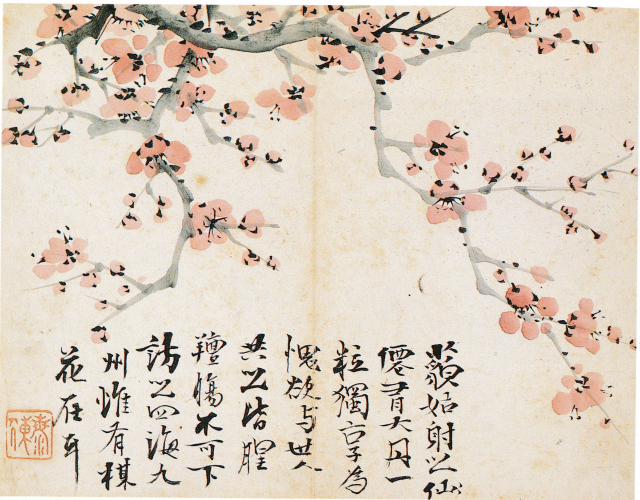 藐姑射之仙
僊有大丹一
粒獨享為
愧欲与世人
共之皆腥
羶腸不可下
訪之四海九
州惟有楳
花在耳